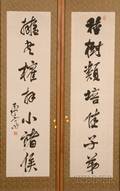 種樹類培佳子弟
擁書權拜小諸侯